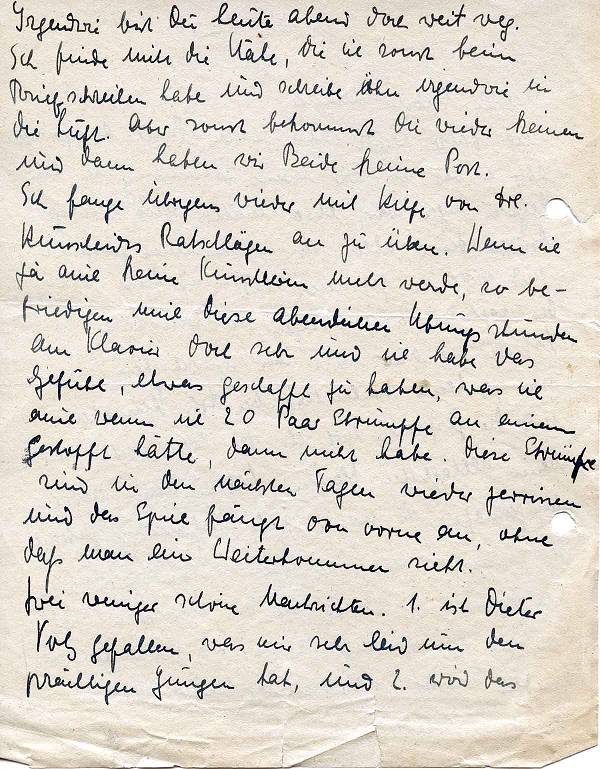 Irgendwie bist Du heute abend doch weit weg.
Ich finde nicht die Nähe, die ich sonst beim
Briefschreiben habe und schreibe eher irgendwie in
die Luft. Aber sonst bekommst Du wieder keinen
und dann haben wir Beide keine Post.
Ich fange übrigens wieder mit Hilfe von
Ratschlägen an zu üben. Wenn ich
ja auch keine Künstlerin mehr werde, so be-
friedigen mich diese abendlichen Übungsstunden
am Klavier doch sehr und ich habe das
Gefühl, etwas geschafft zu haben, was ich
auch wenn ich 20 Paar Strümpfe an einem
gestopft hätte, dann nicht habe. Diese Strümpfe
sind in den nächsten Tagen wieder zerrissen
und das Spiel fängt von vorne an, ohne
daß man ein Weiterkommen sieht.
Zwei weniger schöne Nachrichten. 1. ist Dieter
Volz gefallen, was mir sehr leid um den
prächtigen Jungen tut, und 2. wird das